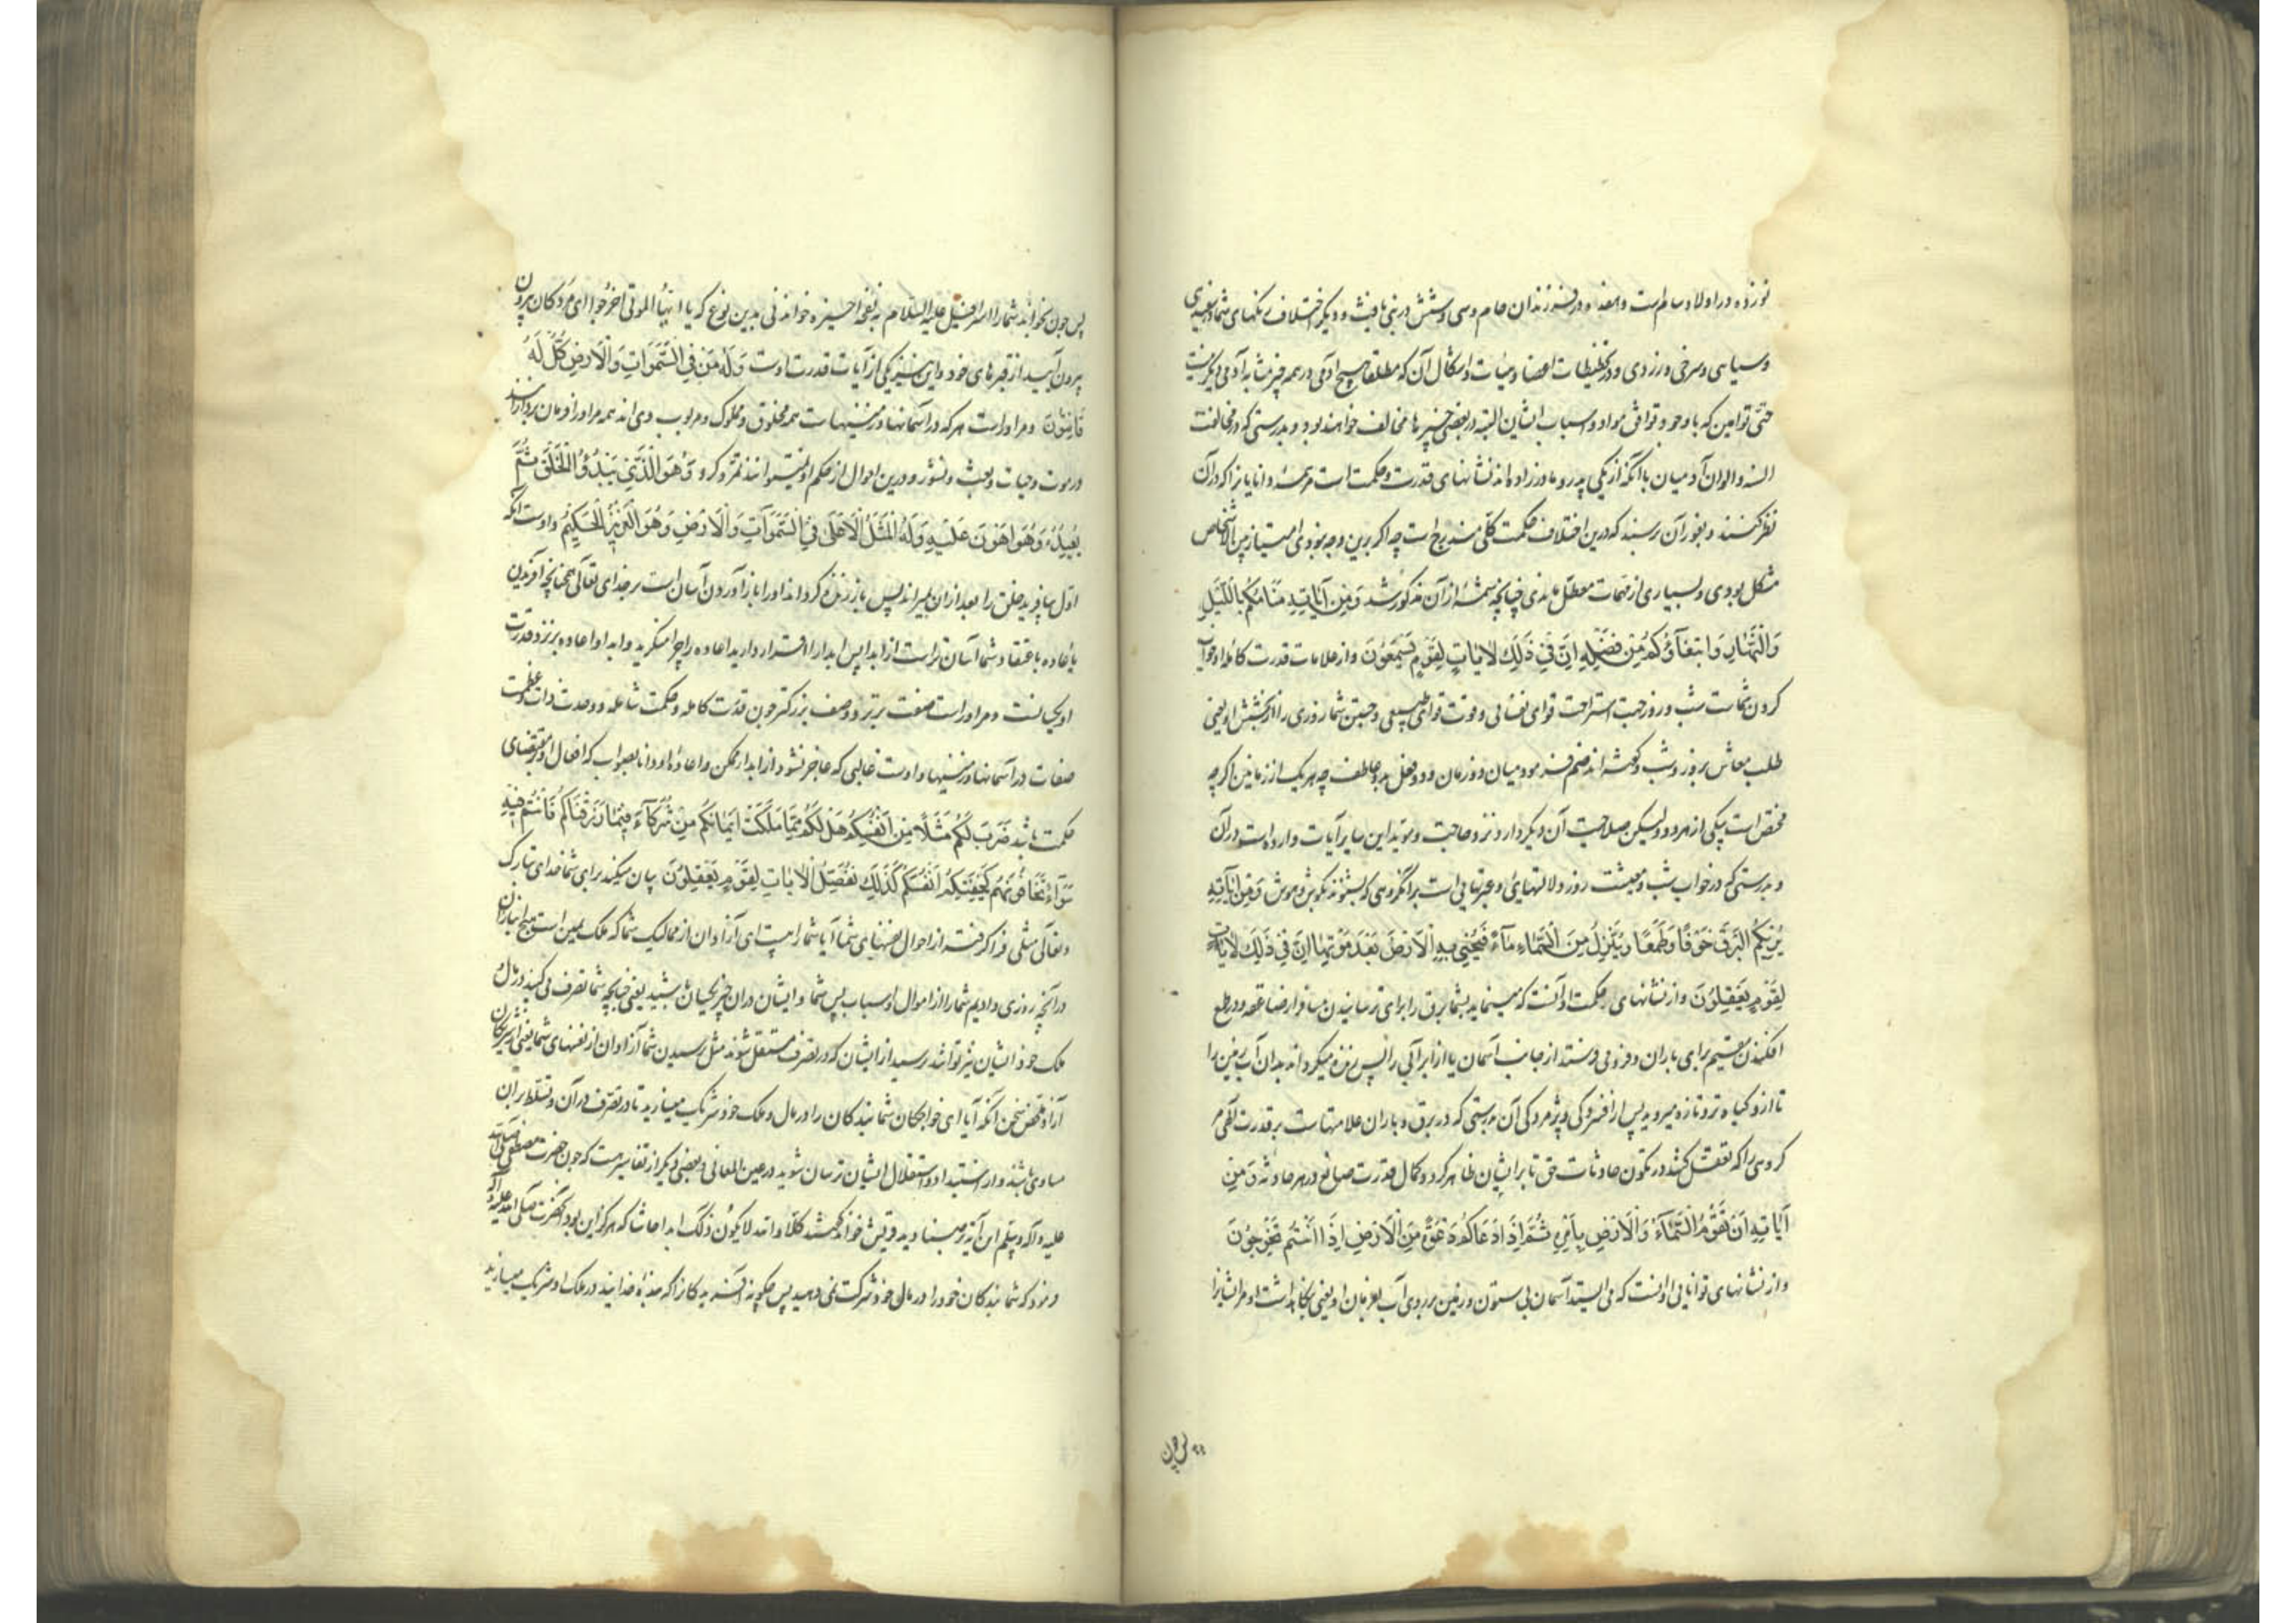 نوزده در اولاد سام است و هفده در فرزندان حام و سی و شش در بنی یافث و دیگر اختلاف رنکهای شما بسفیدی
و سیاهی و سرخی و زردی و در تخطیطات اعضا و هیات و اشکال آن که مطلقا هیچ آدمی در همه چیز مشابه آدمی دیگر نیست
حتی توامین که با وجود توافق مواد و اسباب ایشان البته در بعضی چیزها مخالف خواهند بود و بدرستی که در مخالفت
السنه و الوان آدمیان با آنکه از یکی پدر و مادر زاده اند نشانهای قدرت و حکمت است مر همه دانایانرا که در آن
نظر کنند و بغور آن برسند که درین اختلاف حکمت کلی مندرج است چه اگر برین وجه نبودی امتیاز بین الاشخاص
مشکل بودی و بسیاری از مهمات معطل ماندی چنانچه شمهٔ از آن مذکور شد وَمِن آیاتِهِ مَنامُکُم بِاللَّیلِ
وَالنَّهارِ وَابتِغآؤُکُم مِن فَضلِهِ اِنَّ فی ذلِکَ لَایاتٍ لِقَومٍ یَسمَعُونَ و از علامات قدرت کامله او خواب
کردن شماست شب و روز جهت استراحت قوای نفسانی و قوت قوای طبیعی و جستن شما روزی را از بخشش او یعنی
طلب معاش بروز و شب و گفته اند ضم فرمود میان دو زمان و دو فعل بدو عاطف چه هر یک از زمانین اکرچه
مختص است بیکی از هر دو ولیکن صلاحیت آن دیگر دارد نزد حاجت و موید این سایر آیات وارده است در آن
و بدرستی که در خواب شب و معیشت روز دلالتهای و عبرتهایی است برای گروهی که بشنوند بگوش و هوش وَمِن آیاتِهِ
یُریکُمُ البَرقَ خَوفًا وَطَمَعًا وَیُنَزِّلُ مِنَ السَّماءِ مآءً فَیُحیی بِهِ الاَرضَ بَعدَ مَوتِها اِنَّ فی ذلِکَ لَایاتٍ
لِقَومٍ یَعقِلُونَ و از نشانهای حکمت او آنست که مینماید بشما برق را برای ترسانیدن مسافر از صاعقه و در طمع
افکندن مقیم برای باران و فرو می فرستد از جانب آسمان یا از ابر آبی را پس زنده میگرداند بدان آب زمین را
تا ازو گیاه تر و تازه میروید پس از افسردگی و پژمردگی آن بدرستی که در برق و باران علامتهاست بر قدرت الهی مر
کروهی را که تعقل کنند در تکون حادثات حق تا بر ایشان ظاهر کردد کمال قدرت صانع در هر حادثه وَمِن
آیاتِهِ اَن تَقُومَ السَّمآءُ وَالاَرضُ بِاَمرِهِ ثُمَّ اِذا دَعاکُم دَعوَةً مِنَ الاَرضِ اِذا اَنتُم تَخرُجُونَ
و از نشانهای توانایی او آنست که می ایستد آسمان بی ستون و زمین بر روی آب بفرمان او یعنی نگاهداشت او مر ایشانرا
پس چون
پس چون بخواند شما را اسرافیل علیه السلام به نفخه اخیره خواندنی بدین نوع که یا ایها الموتی اخرجوا ای مردگان بیرون
بیرون آیید از قبرهای خود و این نیز یکی از آیات قدرت اوست وَلَهُ مَن فِی السَّمَواتِ وَالاَرضِ کُلٌّ لَهُ
قانِتُونَ و مر او راست هر که در آسمانها و زمینهاست همه مخلوق و مملوک و مربوب وی اند همه مر او را فرمان بردارانند
در موت و حیات و بعث و نشور و درین احوال از حکم او نمیتوانند تمرد کرد وَهُوَ الَّذی یَبدَؤُا الخَلقَ ثُمَّ
یُعیدُهُ وَهُوَ اَهوَنُ عَلَیهِ وَلَهُ المَثَلُ الاَعلی فِی السَّمَواتِ وَالاَرضِ وَهُوَ العَزیزُ الحَکیمُ و اوست آنکه
اول بیافرید خلق را بعد از آن بمیراند پس باز زنده گرداند او را و باز آوردن آسان است بر خدای تعالی همچنانچه آفریدن
یا اعاده باعتقاد شما آسان تر است از ابدا پس ابدا را اقرار دارید اعاده را چرا منکرید و ابدا و اعاده بر نزد قدرت
او یکسانست و مر او راست صفت برتر و وصف بزرگتر چون قدرت کامله و حکمت شامله و وحدت ذات و عظمت
صفات در آسمانها و زمینها و اوست غالبی که عاجز نشود از ابدا ممکن و اعادهٔ او دانا بصواب که افعال او بمقتضای
حکمت باشد ضَرَبَ لَکُم مَثَلًا مِن اَنفُسِکُم هَل لَکُم مِمّا مَلَکَت اَیمانُکُم مِن شُرَکآءَ فیما رَزَقناکُم فَاَنتُم فیهِ
سَوآءٌ تَخافُونَهُم کَخیفَتِکُم اَنفُسَکُم کَذلِکَ نُفَصِّلُ الایاتِ لِقَومٍ یَعقِلُونَ بیان میکند برای شما خدای تبارک
و تعالی مثلی فرا گرفته از احوال نفسهای شما آیا شما را هست ای آزادان از ممالیک شما که ملک یمین است هیچ انبازان
در آنچه روزی دادیم شما را از اموال و اسباب پس شما و ایشان در آن چیز یکسان باشید یعنی چنانچه شما تصرف می کنید در مال
ملک خود ایشان نیز توانند رسید از ایشان که در تصرف مستقل شوند مثل رسیدن شما آزادان از نفسهای شما یعنی از شریکان
آزاد ملخص سخن آنکه آیا ای خواجگان شما بندکان را در مال و ملک خود شریک میسازید تا در تصرف در آن و تسلط بر آن
مساوی باشند و از استبداد و استقلال ایشان ترسان شوید در عین المعانی و بعضی دیگر از تفاسیر هست که چون حضرت مصطفی صلی الله
علیه و آله و سلم این آیه بر صنادید قریش خواند گفتند کلا و الله لا یکون ذلک ابدا حاشا که هرگز این بود آنحضرت صلی الله علیه و آله
فرمود که شما بندکان خود را در مال خود شرکت نمی دهید پس چکونه آفریدکانرا که بندهٔ خدایند در ملک او شریک میسازید